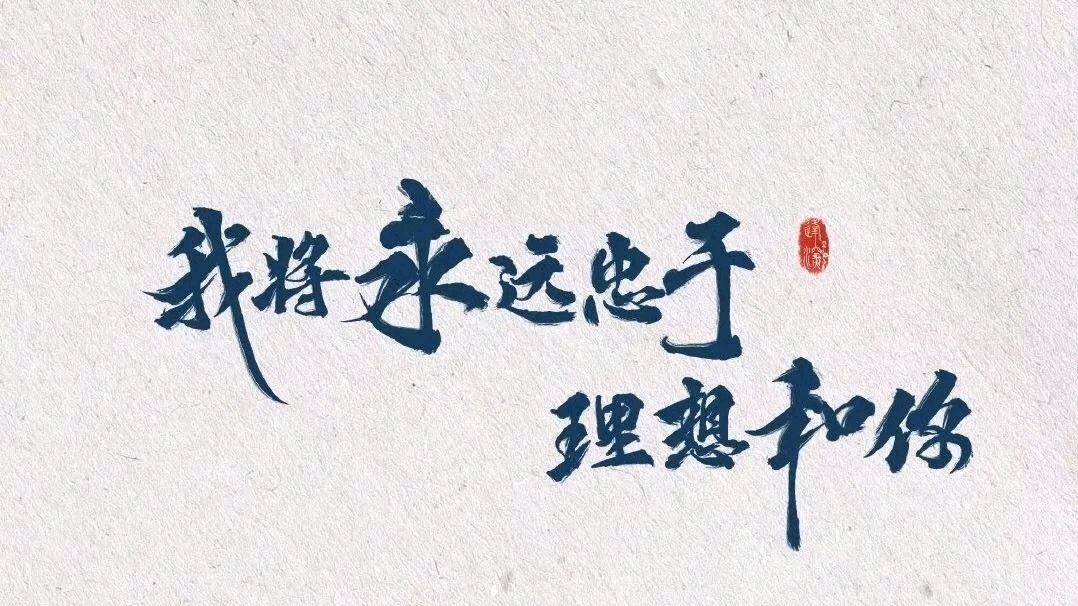 我将永远忠于
理想和你